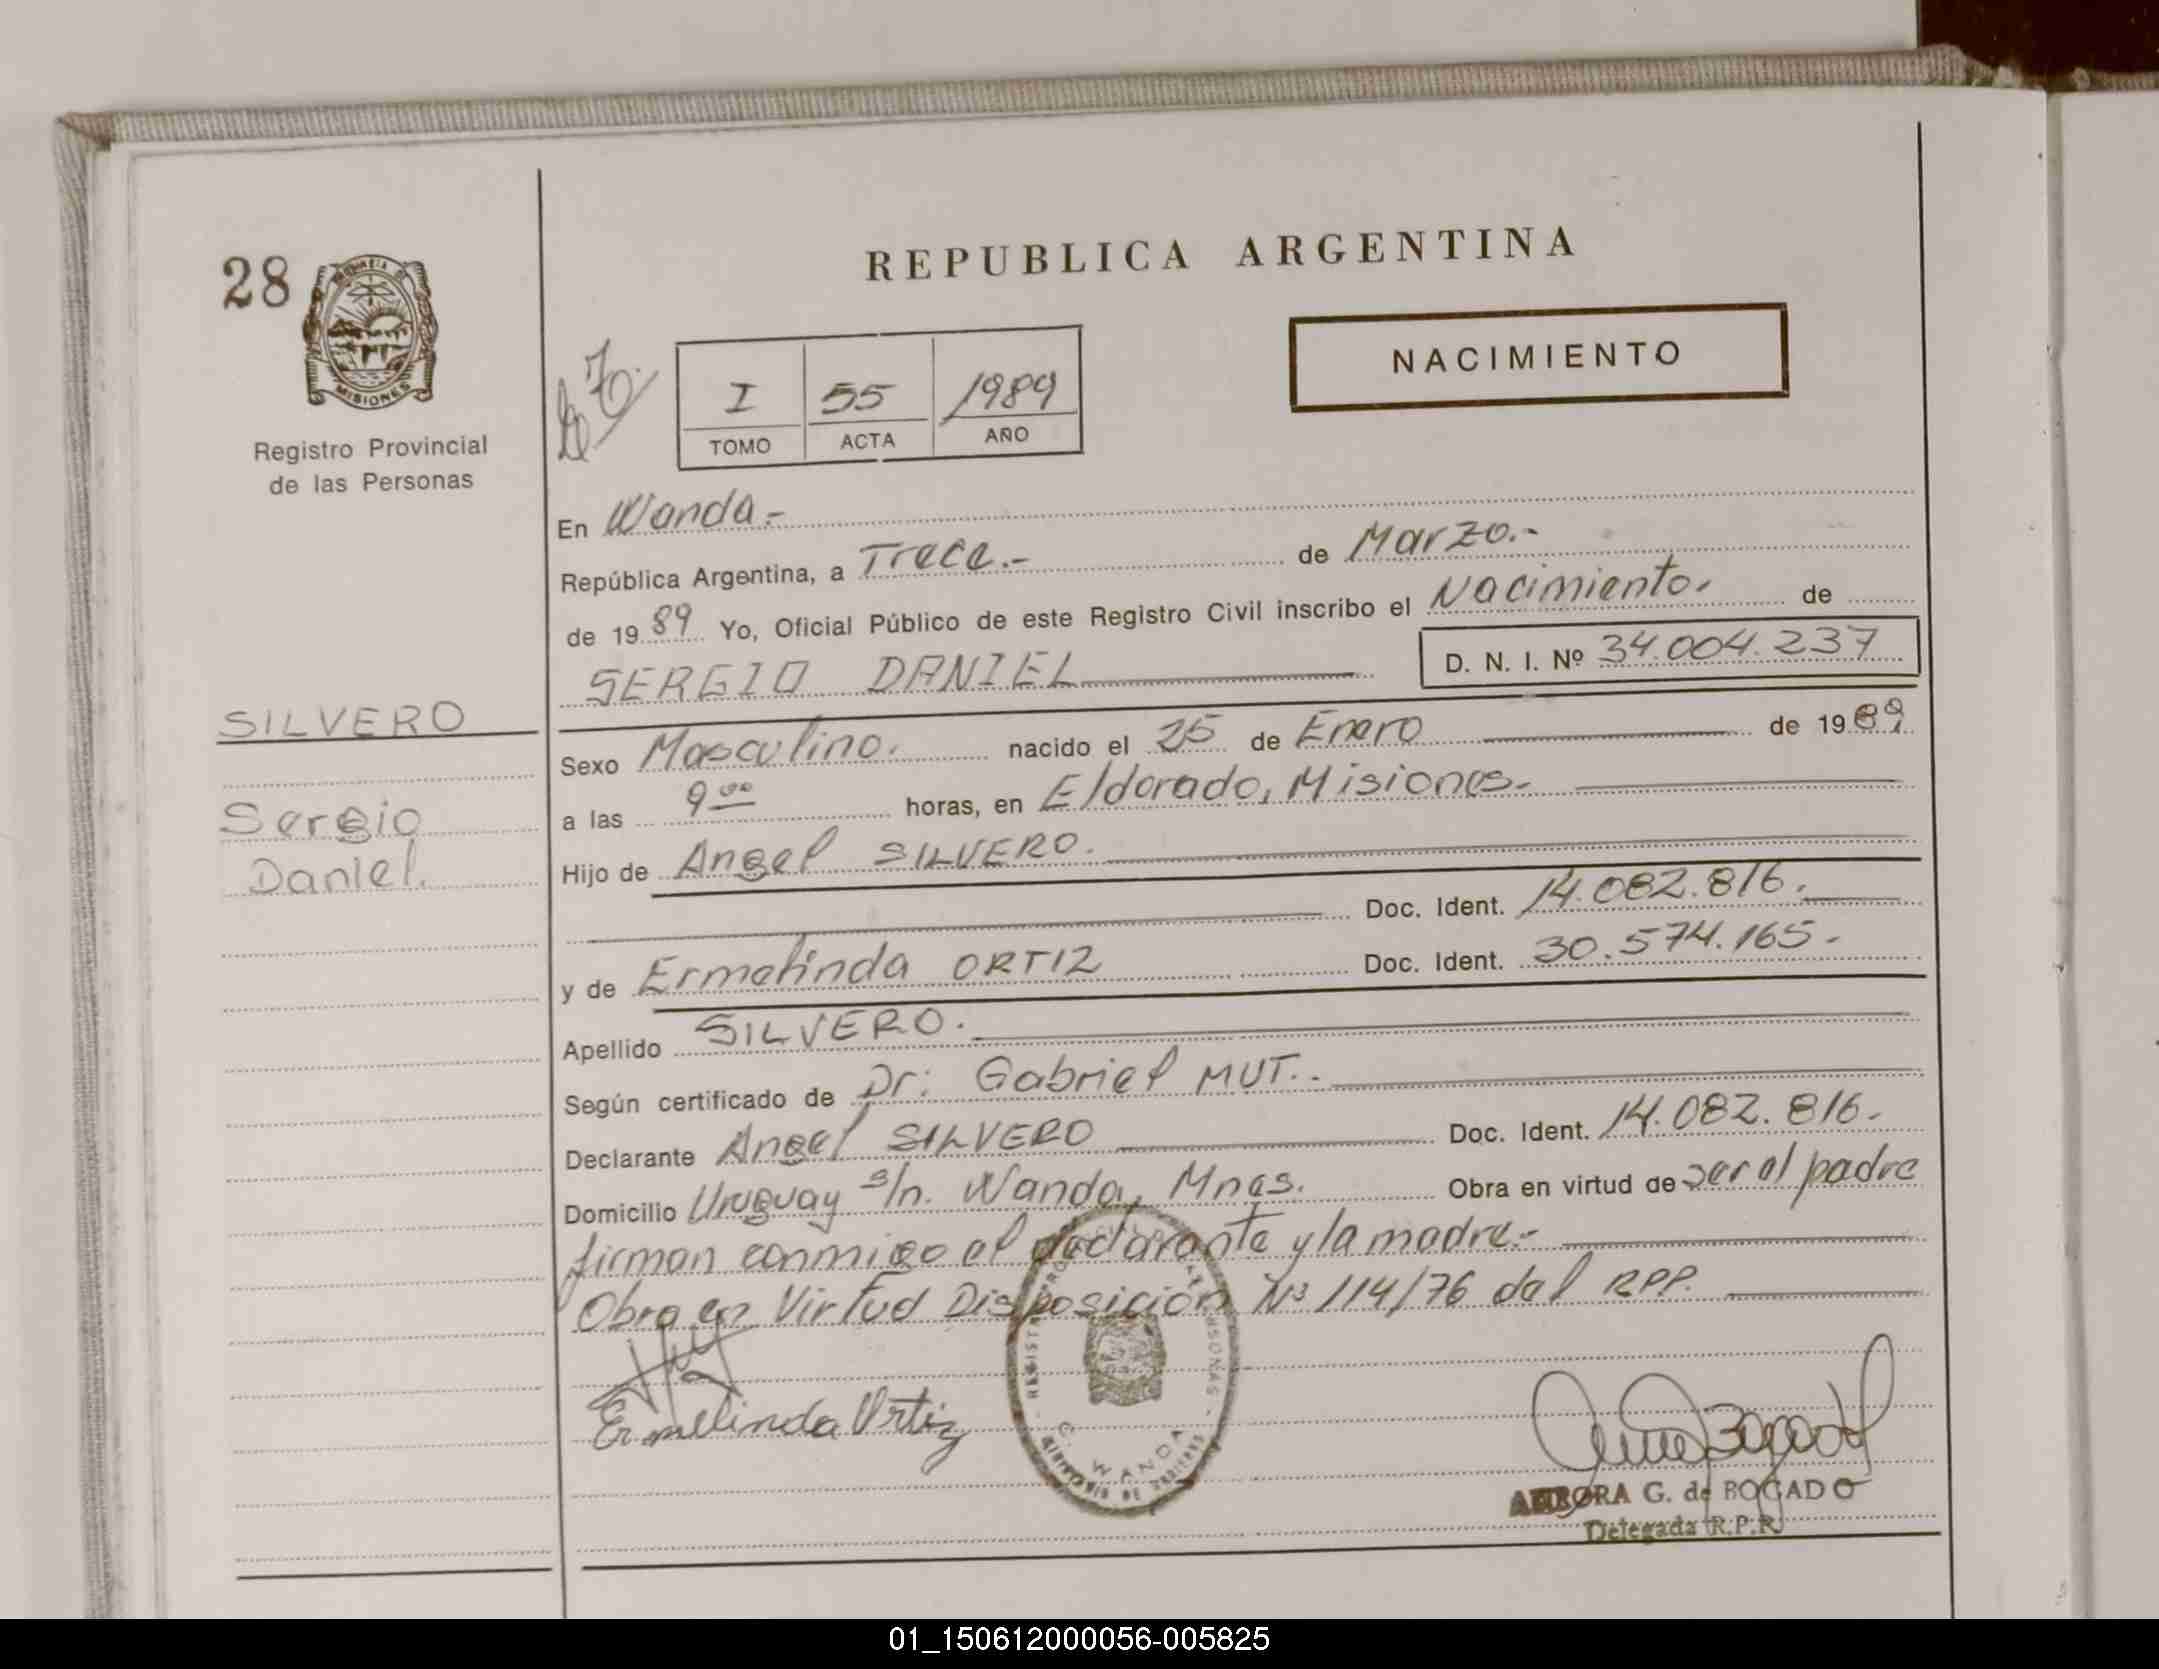 28
PROVINCIA DE
MISIONES
Registro Provincial
de las Personas
REPUBLICA ARGENTINA
NACIMIENTO
I 55 1989
TOMO ACTA AÑO
En Wanda.-
República Argentina, a Trece.- de Marzo.-
de 19 89 Yo, Oficial Público de este Registro Civil inscribo el Nacimiento. de
SERGIO DANIEL D. N. I. Nº 34.004.237
SILVERO
Sergio
Daniel.
Sexo Masculino. nacido el 25 de Enero de 19 89
a las 9 00 horas, en Eldorado, Misiones.
Hijo de Angel SILVERO.
Doc. Ident. 14.082.816.
y de Ermelinda ORTIZ Doc. Ident. 30.574.165.
Apellido SILVERO.
Según certificado de Dr: Gabriel MUT.
Declarante Angel SILVERO Doc. Ident. 14.082.816.
Domicilio Uruguay s/n. Wanda, Mnes. Obra en virtud de ser el padre
firman conmigo el declarante y la madre.-
Obra en Virtud Disposición Nº 114/76 del RPP.
Ermelinda Ortiz
WANDA
G. de BOGADO
Delegada R.P.P.
01_150612000056-005825